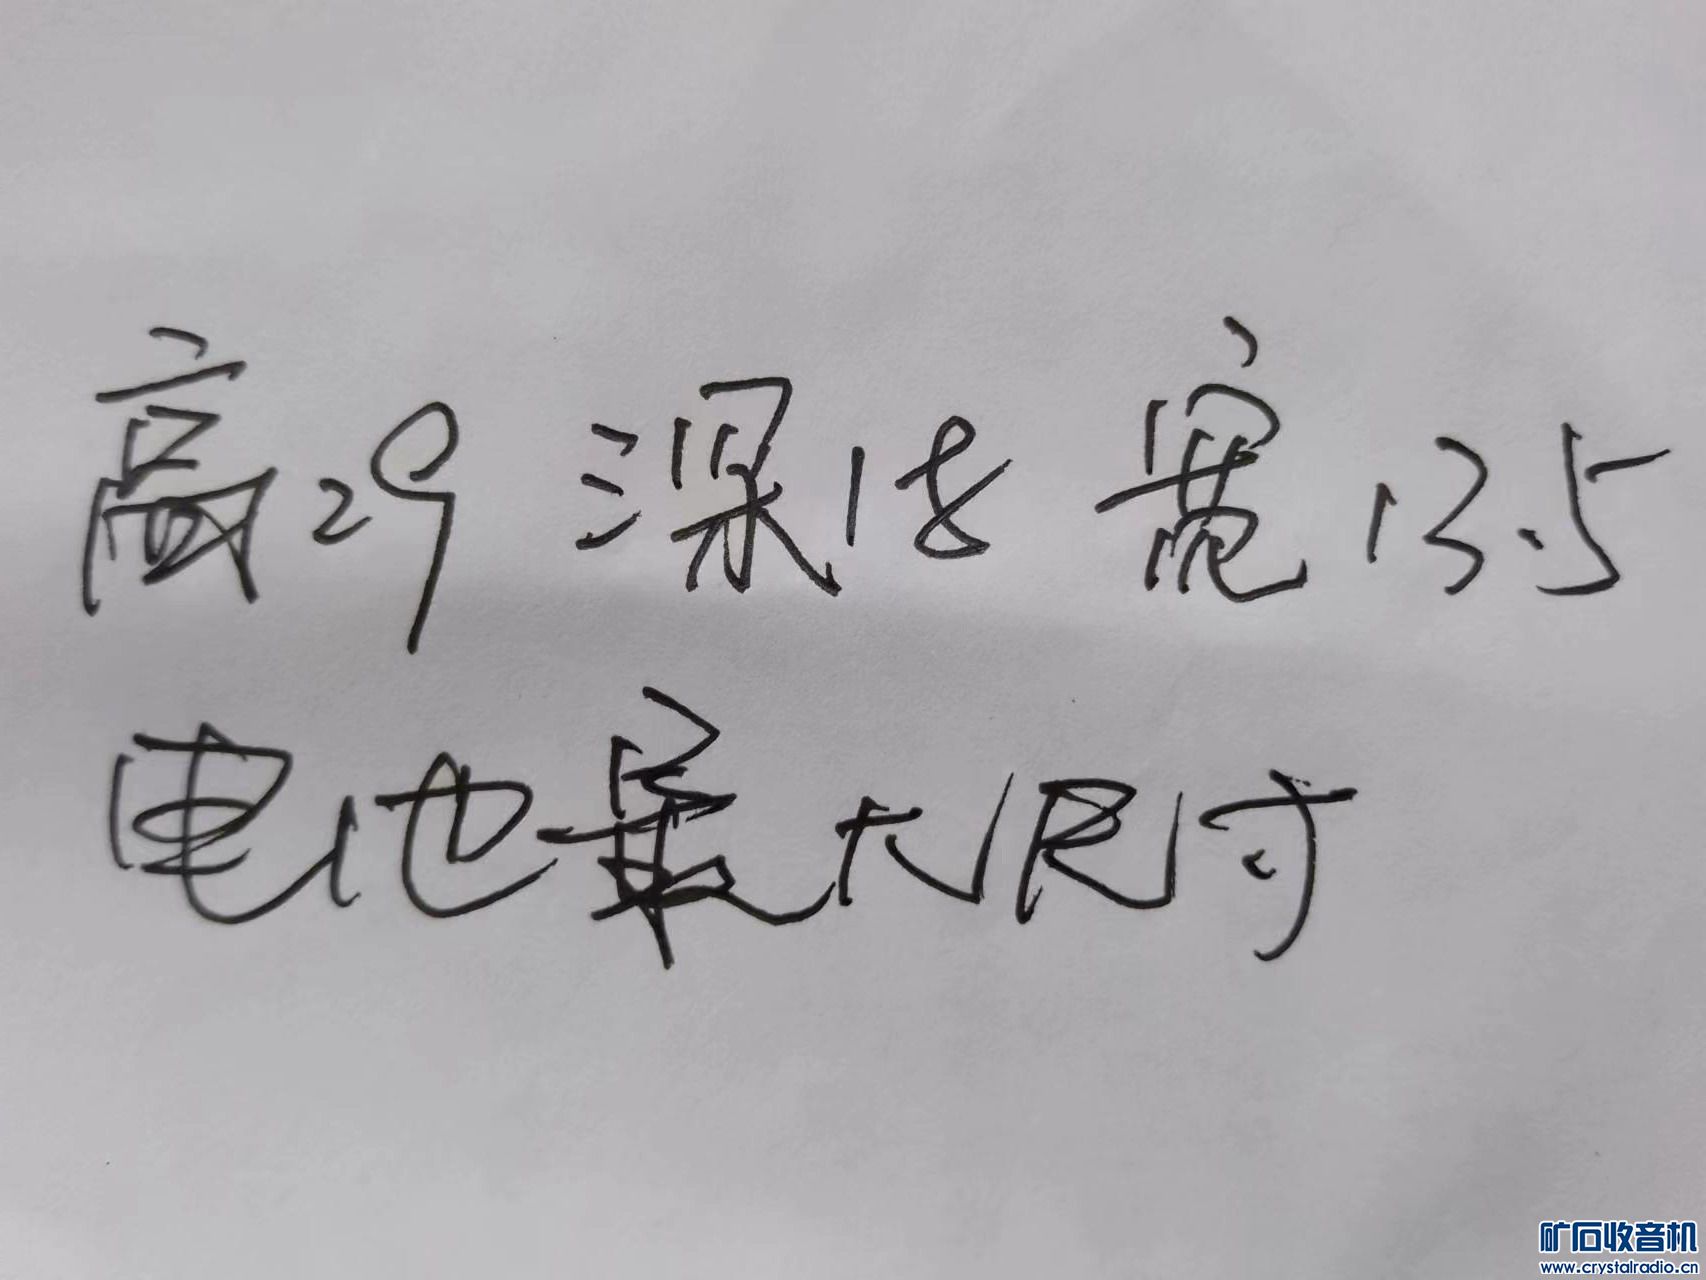 高29 深18 宽13.5
电池最大尺寸
矿石收音机
www.crystalradio.cn